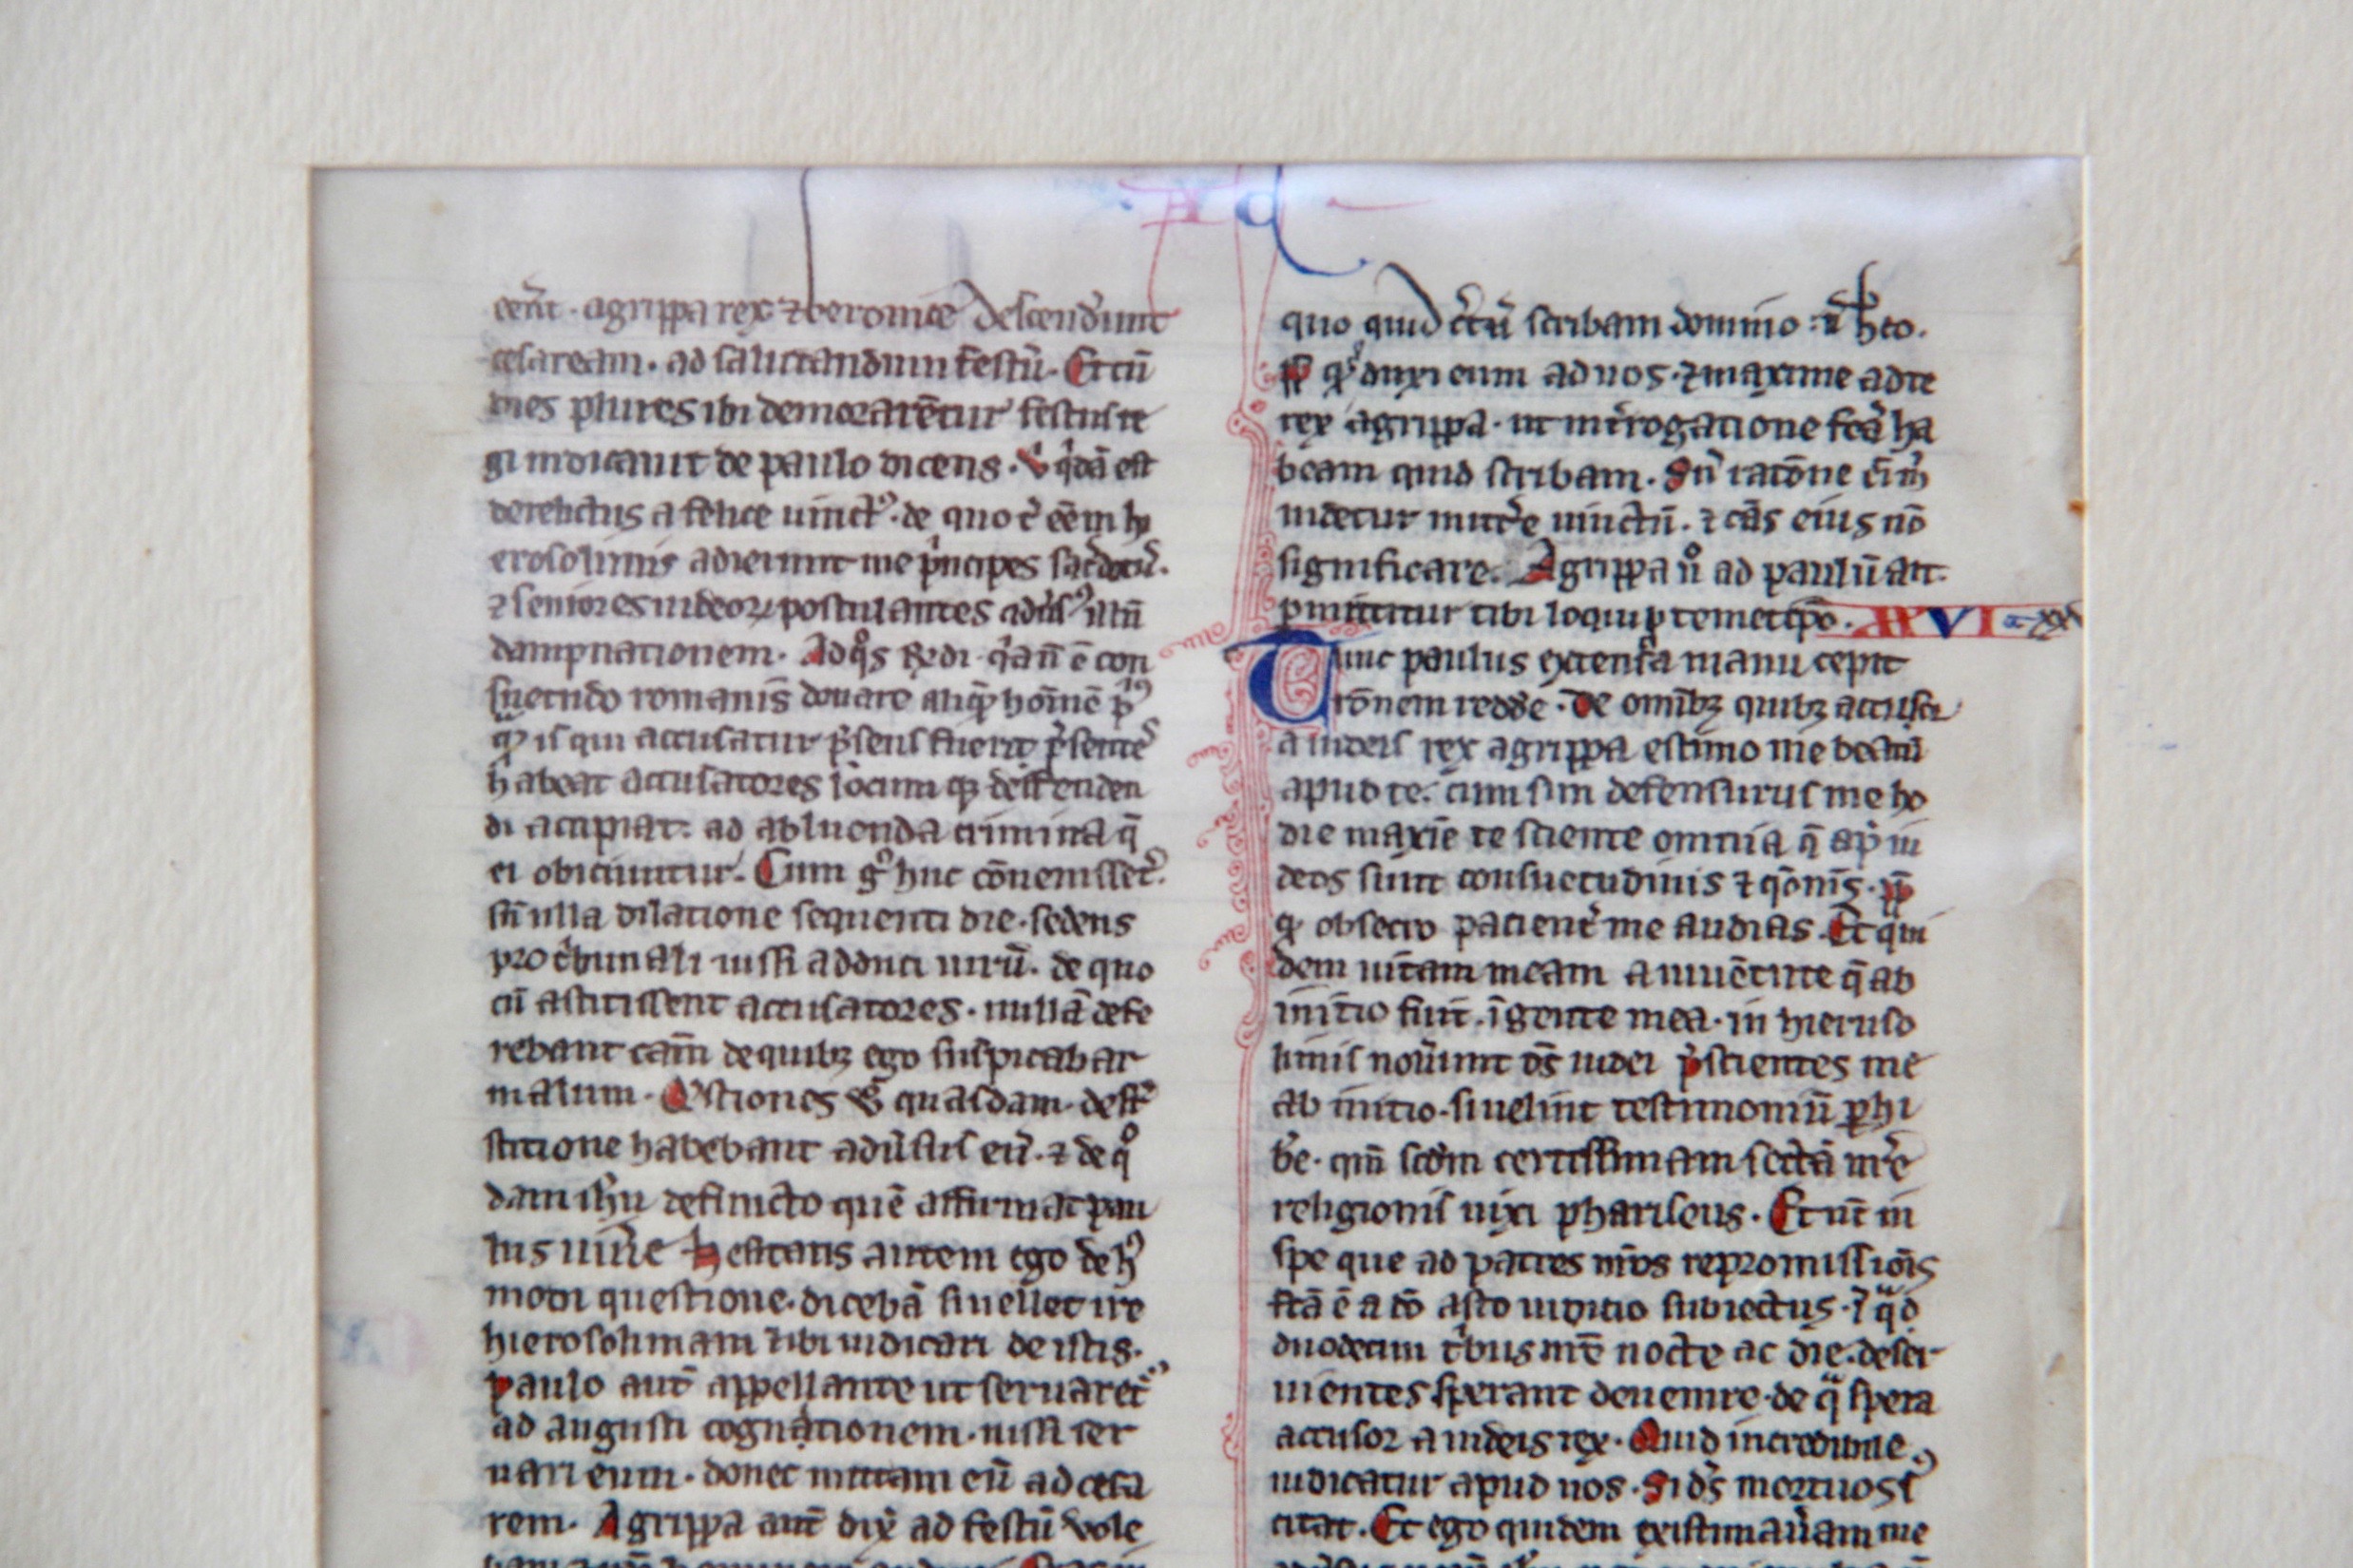 Ad
cent̄. agrippa rex ⁊ beronice descend̾unt
cesaream. ad salutandum festū. Et cū
dies plures ibi demorarētur festus re
gi indicauit de paulo dicens. Ur̄ q̾dā est
derelictus a felice uinct᷒. de quo c̄ eēm hy
erosolimis adierunt me p̾ncipes sac̾dotū.
⁊ seniores iudeoꝝ postulantes adu̾s᷒ illū
dampnationem. Ad q°s rn̄di q̾a nō ē con
suetudo romanis donare aliqꝫ hoīnē p̾᷒
qᷓ is qui accusatur p̾sens fuerit p̾sentes
habeat accusatores locum qꝫ deffenden
di accipiat. ad abluenda crimina q̄
ei obiciuntur. Cum g̊ huc cōuenissēt.
sn̄ ulla dilatione sequenti die. sedens
pro t̾bunali iussi adduci uirū. de quo
cū astitissent accusatores. nullā defe
rebant cām̄ de quibꝫ ego suspicabar
malum. Q̄stiones u̾ quasdam de su̾
stitione habebant adu̾sus eū. ⁊ de q°
dam ih̄u defuncto quē affirmat pau
lus uiu̾e hesitans autem ego de h᷒
modi questione. dicebā si uellet ire
hierosolimam ⁊ ibi iudicari de istis.
paulo aut̄ appellante ut seruaret̾
ad augusti cognitionem. iussi ser
uari eum. donec mittam eū ad cesa
rem. Agrippa aut̄ dix̄ ad festū uole
quo quid c̄tū scribam domino n̄ h̾eo.
pp̄ qd̾ duxi eum ad uos. ⁊ maxime ad te
rex agrippa. ut int̾rogatione fc̄a ha
beam quid scribam. Sn̄ ratōne eni᷒
uidetur mitt̾e uinctū. ⁊ cās eius nō
significare. Agrippa u° ad paulū ait.
p̄mittitur tibi loqui ꝓ temetip̄o. XXVI
Tunc paulus extensa manu cepit
rōnem redde̾. De omībꝫ quibꝫ accusor
a iudeis rex agrippa estimo me beatū
apud te. cum sim defensurus me ho
die maxīe te sciente omnia q̄ ap̾ iu
deos sunt consuetudinis ⁊ q̄ōnis. pp̄
qd̾ obsecro patient̾ me audias. Et qui
dem uitam meam a iuuētute q̄ ab
initio fuit. ī gente mea. in hieruso
limis nou̾unt oēs iudei p̾scientes me
ab initio. si uelint testimoniū ꝑhi
b̾e. qm̄ scdm̄ certissimam sectā nr̄e
religionis uixi phariseus. Et nūc in
spe que ad patres nr̄os repromissiōis
fc̄ā ē a dō asto iuditio subiectus. ī qᷓ
duodecim t̾bus nr̄e nocte ac die. deser
uientes sperant deuenire. de qᷓ spera
accusor a iudeis rex. Quid incredibile
iudicatur apud uos. Si ds̄ mortuos
citat. Et ego quidem existimau̾am me